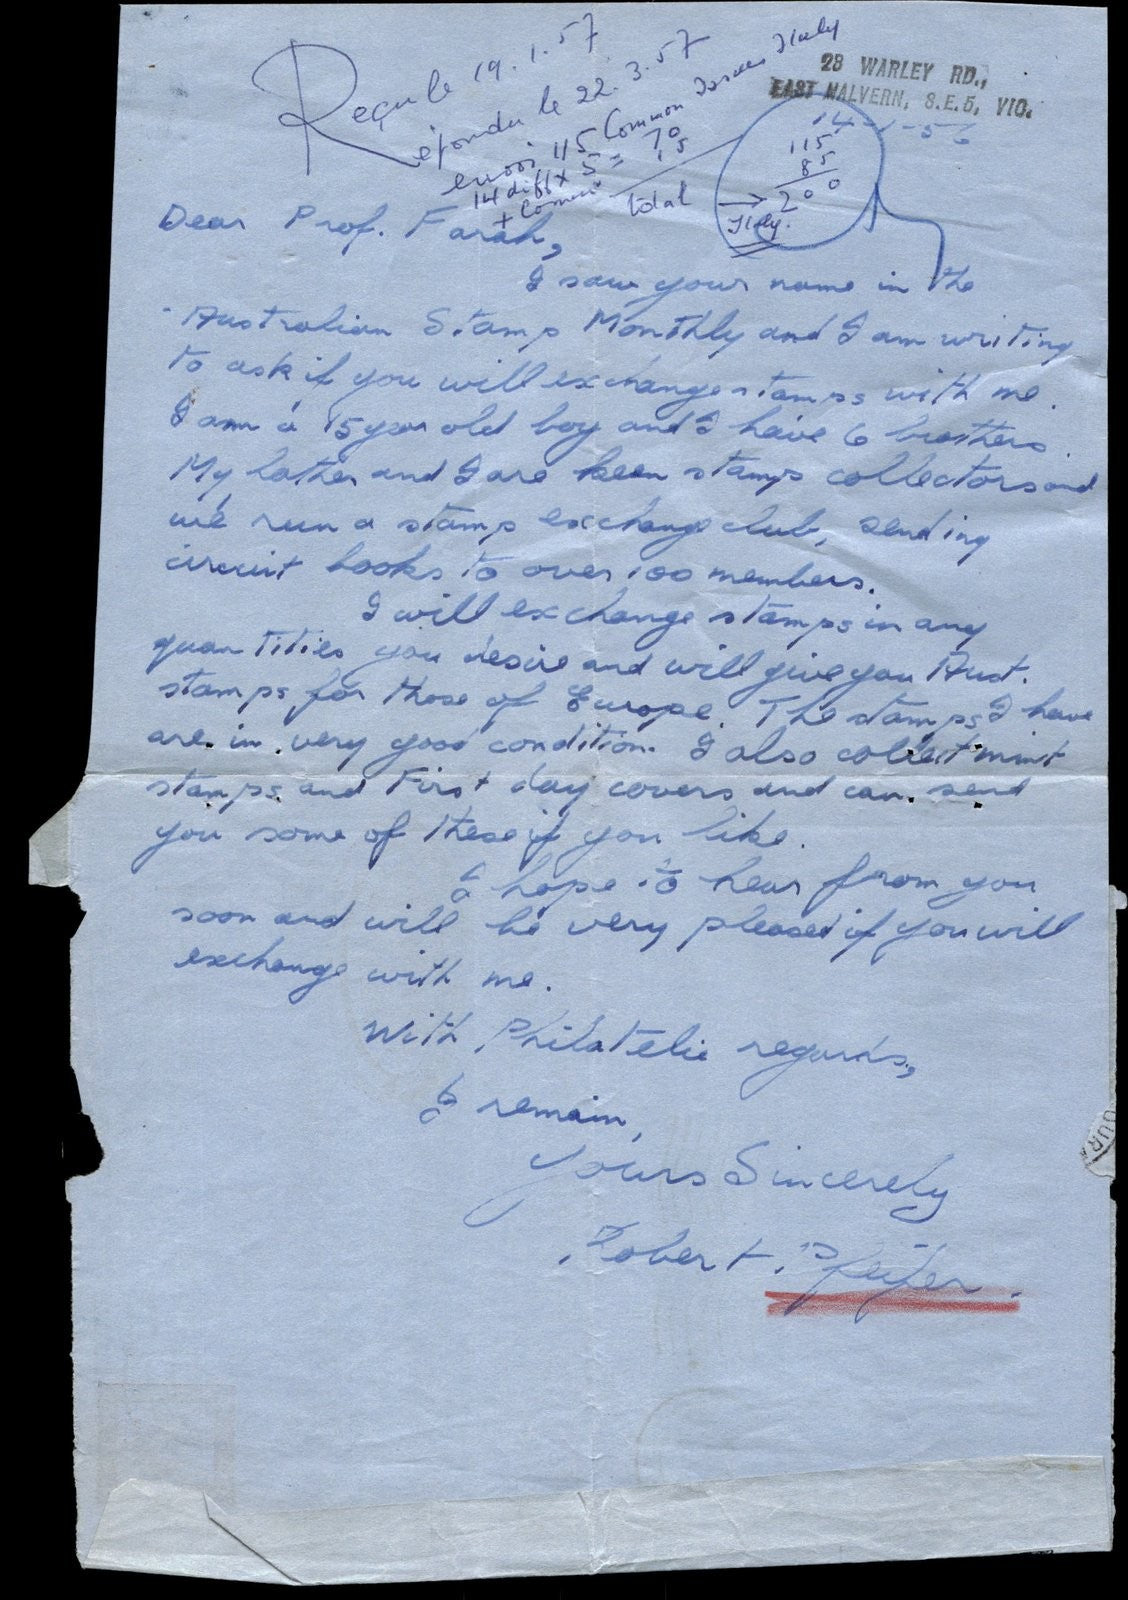 Reçu le 19.1.57
Répondu le 22.3.57
envoi 115 Common Issues Italy
14 diff x 5 = 70
+ Comm. 15
total
28 WARLEY RD.,
EAST MALVERN, S.E.5, VIC.
14-1-56
115
85
200
Italy.
Dear Prof. Farah,
I saw your name in the
Australian Stamp Monthly and I am writing
to ask if you will exchange stamps with me.
I am a 15 year old boy and I have 6 brothers.
My father and I are keen stamps collectors and
we run a stamp exchange club, sending
circuit books to over 100 members.
I will exchange stamps in any
quantities you desire and will give you Aust.
stamps for those of Europe. The stamps I have
are in very good condition. I also collect mint
stamps and First day covers and can send
you some of these if you like.
I hope to hear from you
soon and will be very pleased if you will
exchange with me.
With Philatelic regards,
I remain,
Yours Sincerely
Robert Pfeifer.
OUR